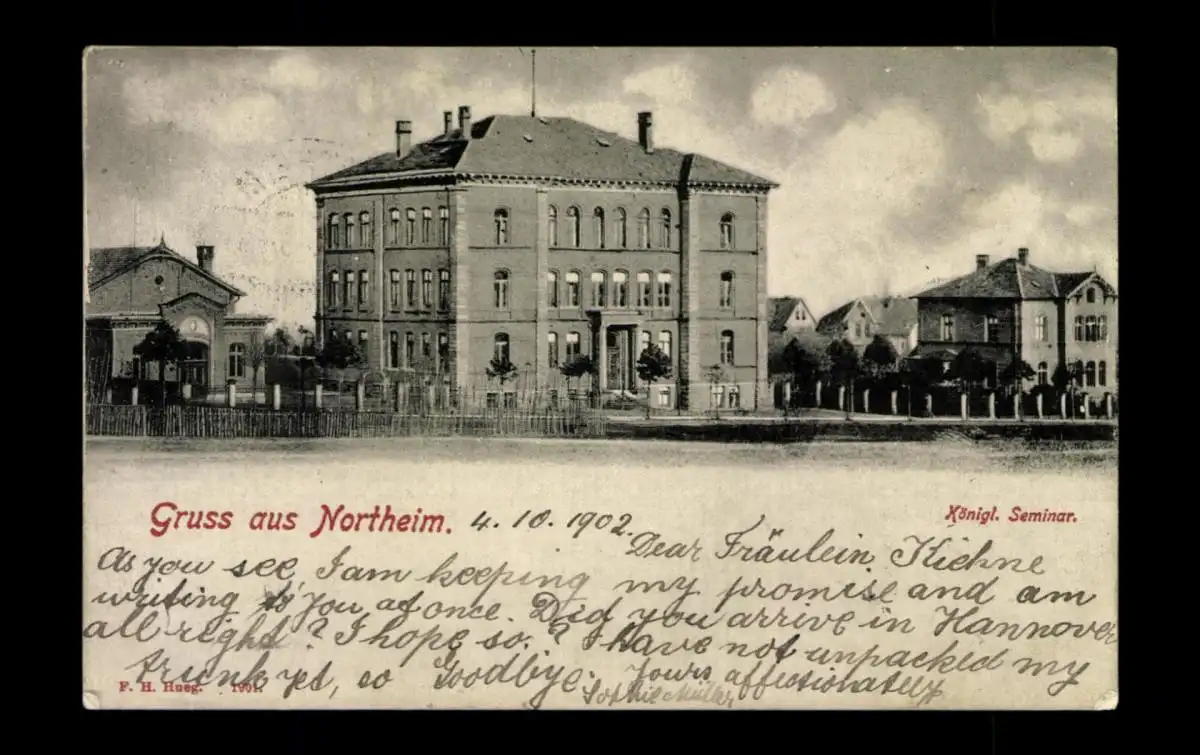 Gruss aus Northeim. 4. 10. 1902.
Königl. Seminar.
Dear Fräulein Kiehne
As you see, I am keeping my promise and am
writing to you at once. Did you arrive in Hannover
all right? I hope so. I have not unpacked my
trunk yet, so Goodbye. Yours affectionately
Sophie Müller
F. H. Hueg. 1901.